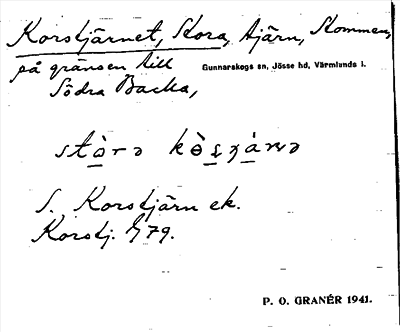 Korstjärnet, Stora, tjärn, Stommen,
på gränsen till
Gunnarskogs sn, Jösse hd, Värmlunds l.
Södra Backa,
stòrə
S. Korstjärn ek.
Korstj. 79.
P. O. GRANÉR 1941.